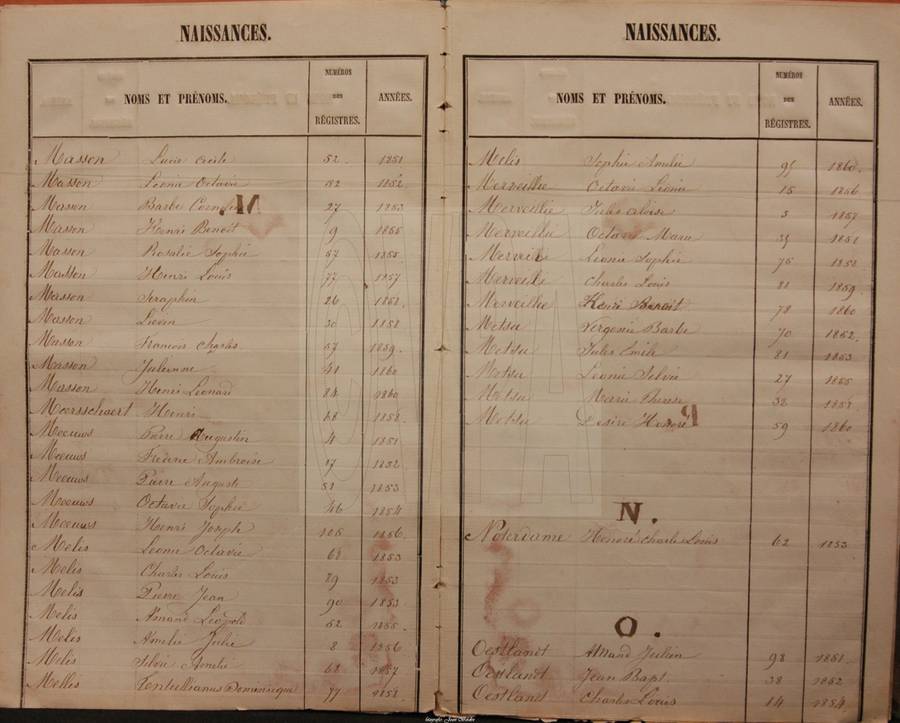 NAISSANCES.
NOMS ET PRÉNOMS. NUMÉROS DES RÉGISTRES. ANNÉES.
Masson Lucie Cécile 52 1851
Masson Leonie Octavie 82 1852
Masson Barbe 27 1853
Masson Henri Benoit 9 1855
Masson Rosalie Sophie 57 1855
Masson Henri Louis 77 1857
Masson Seraphin 26 1858
Masson Lievin 30 1858
Masson Francois Charles 57 1859.
Masson Julienne 41 1860
Masson Henri Léonard 84 1860
Meersschaert Henri 68 1858
Meeuws Pierre Augustin 4 1851
Meeuws Ambroise 17 1852
Meeuws Pierre Auguste 52 1853
Meeuws Octavie Sophie 46 1854
Meeuws Henri Joseph 108 1856
Melis Leonie Octavie 68 1853
Melis Charles Louis 89 1853
Melis Pierre Jean 90 1853
Melis Amand Léopold 52 1855
Melis Amelie Julie 8 1856
Melis Silvie Amelie 68 1857
Mellis Tertullianus Dominique 77 1858
NAISSANCES.
NOMS ET PRÉNOMS. NUMÉROS DES RÉGISTRES. ANNÉES.
Melis Sophie Amelie 95 1860.
Merveillie Octavie Léonie 15 1856
Merveillie Jules Aloïse 3 1857
Merveillie Octavie Marie 39 1851
Merveillie Leonie Sophie 75 1858
Merveillie Charles Louis 81 1859
Merveillie Henri Benoit 78 1860
Metsu Virginie Barbe 70 1852
Metsu Jules Emile 81 1853
Metsu Leonie Silvie 27 1855
Metsu Marie Thérèse 38 1858
Metsu Desiré Honoré 59 1860
N.
Noterdame Honoré Charles Louis 62 1853
O.
Oestlandt Amand Julien 98 1851
Oestlandt Jean Bapt. 38 1852
Oestlandt Charles Louis 14 1854